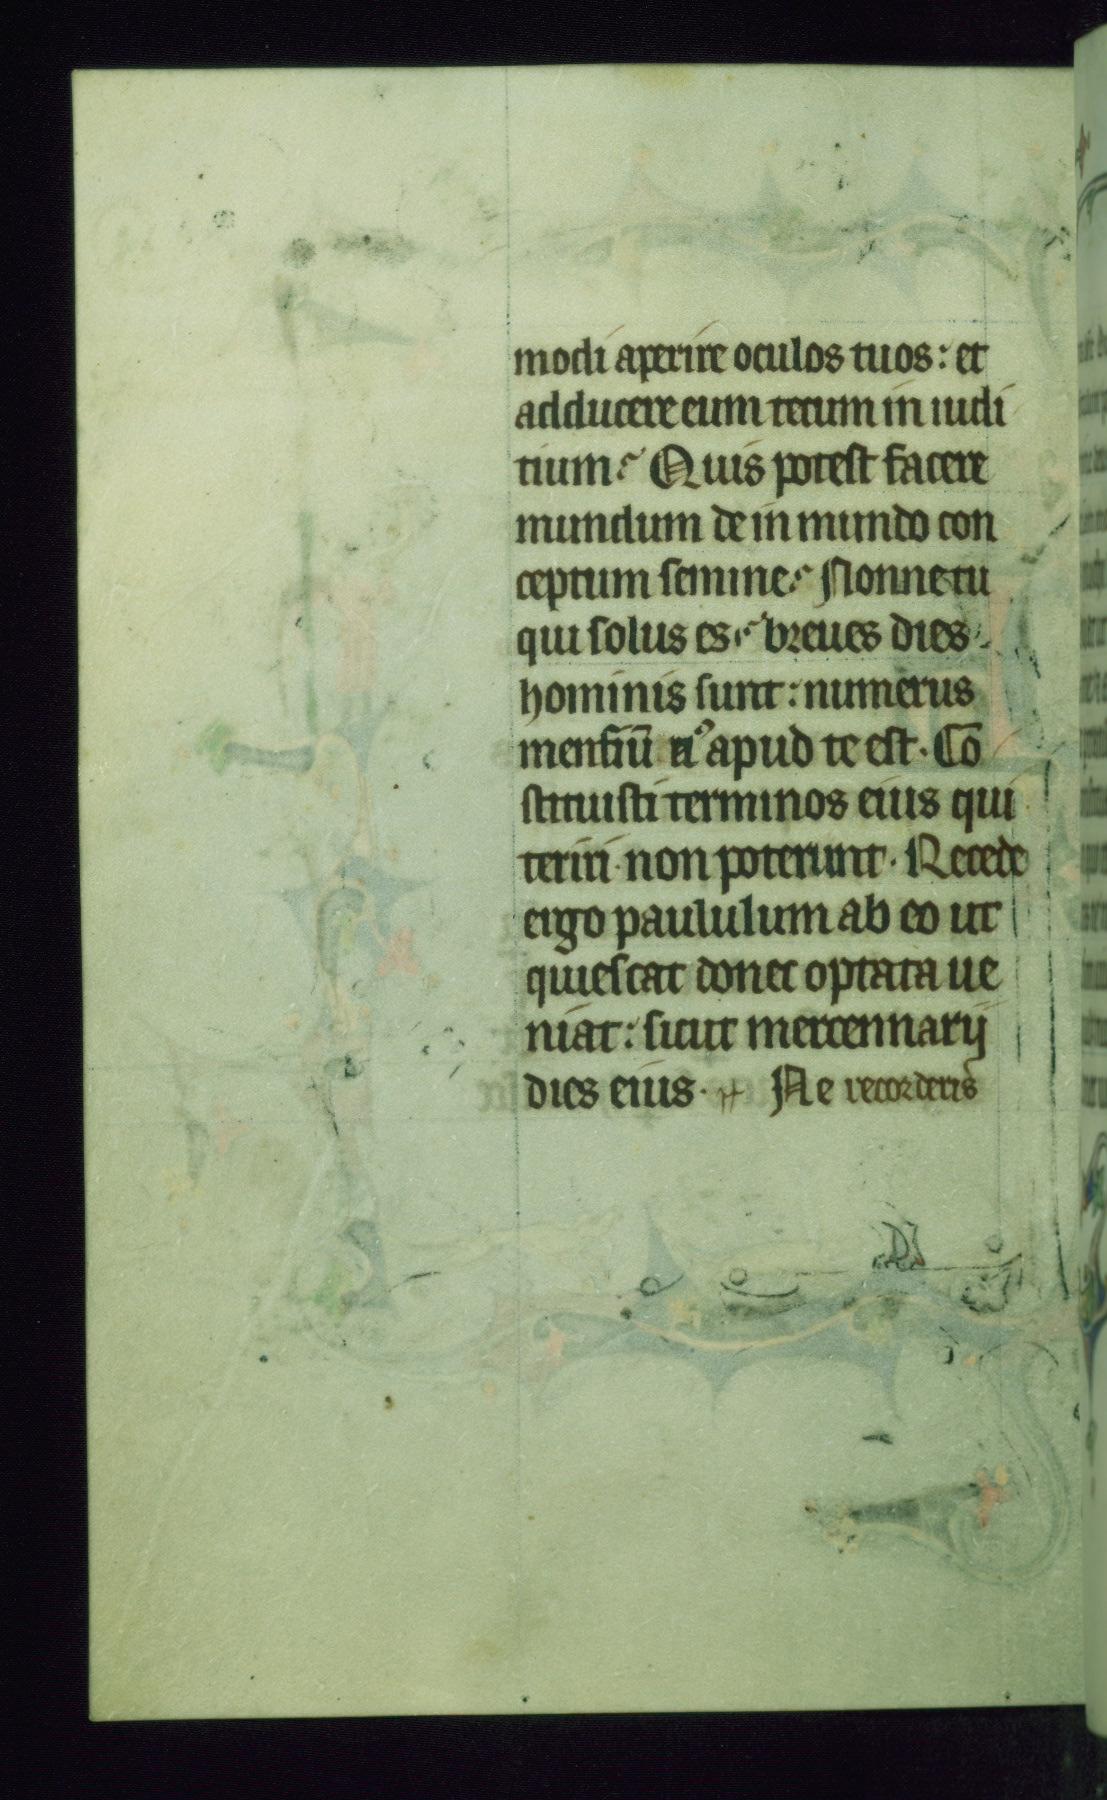 modi aperire oculos tuos: et
adducere eum tecum in iudi
tium? Quis potest facere
mundum de in mundo con
ceptum semine? Nonne tu
qui solus es? breues dies
hominis sunt: numerus
mensiū ei⁹ apud te est. Cō
stituisti terminos eius qui
teriri non poterunt. Recede
ergo paululum ab eo ut
quiescat donec optata ue
niat: sicut mercennarij
dies eius. Ne recorderis